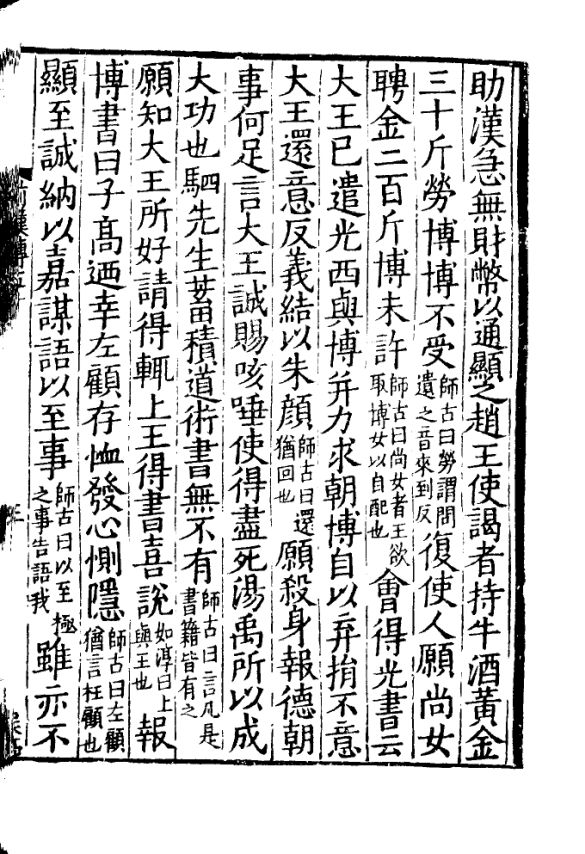 助漢急無財幣以通顯之趙王使謁者持牛酒黃金
三十斤勞博博不受師古曰勞謂問遺之音來到反復使人願尚女
聘金二百斤博未許師古曰尚女者王欲取博女以自配也會得光書云
大王已遣光西與博幷力求朝博自以弃捐不意
大王還意反義結以朱顔師古曰還猶回也願殺身報德朝
事何足言大王誠賜咳唾使得盡死湯禹所以成
大功也駟先生蓄積道術書無不有師古曰言凡是書籍皆有之
願知大王所好請得輒上王得書喜說如淳曰上與王也報
博書曰子高迺幸左顧存恤發心惻隱師古曰左顧猶言枉顧也
顯至誠納以嘉謀語以至事師古曰以至極之事告語我雖亦不